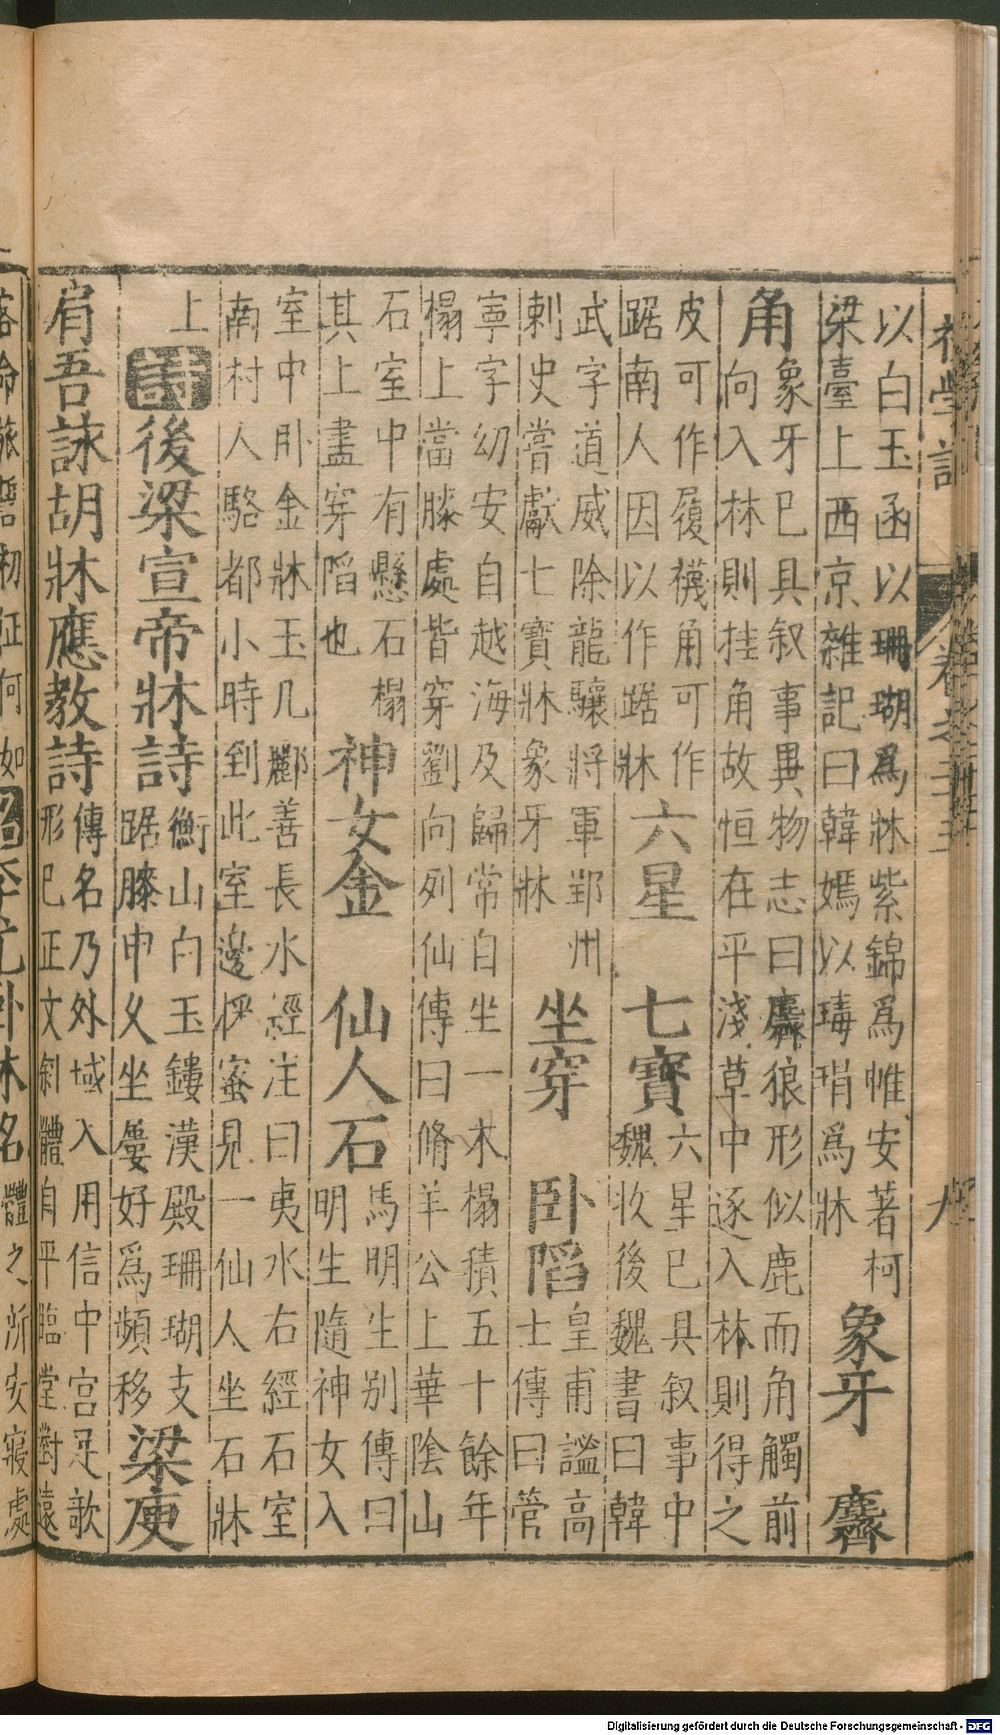 初學記 卷之二十五
以白玉函以珊瑚爲牀紫錦爲帷安著柯
梁臺上西京雜記曰韓嫣以瑇瑁爲牀
象牙 麡
角
象牙已具叙事異物志曰麡狼形似鹿而角觸前
向入林則挂角故恒在平淺草中逐入林則得之
皮可作履襪角可作
踞南人因以作踞牀
六星 七寶
六星已具叙事中
魏收後魏書曰韓
武字道威除龍驤將軍郢州
剌史嘗獻七寶牀象牙牀
坐穿 卧䧟
皇甫謐高
士傳曰管
寧字幼安自越海及歸常自坐一木榻積五十餘年
榻上當膝處皆穿劉向列仙傳曰脩羊公上華陰山
石室中有懸石榻
其上盡穿䧟也
神女金 仙人石
馬明生别傳曰
明生隨神女入
室中卧金牀玉几酈善長水經注曰夷水右經石室
南村人駱都小時到此室邊採蜜見一仙人坐石牀
上
詩 後梁宣帝牀詩
衡山白玉鏤漢殿珊瑚支
踞膝申久坐屢好爲頻移
梁庾
肩吾詠胡牀應教詩
傳名乃外域入用信中宫足欹
形已正文斜體自平臨堂對遠
客命旅誓初征何如
銘 李尤卧牀銘
體之所安寢處
Digitalisierung gefördert durch die Deutsche Forschungsgemeinschaft - DFG